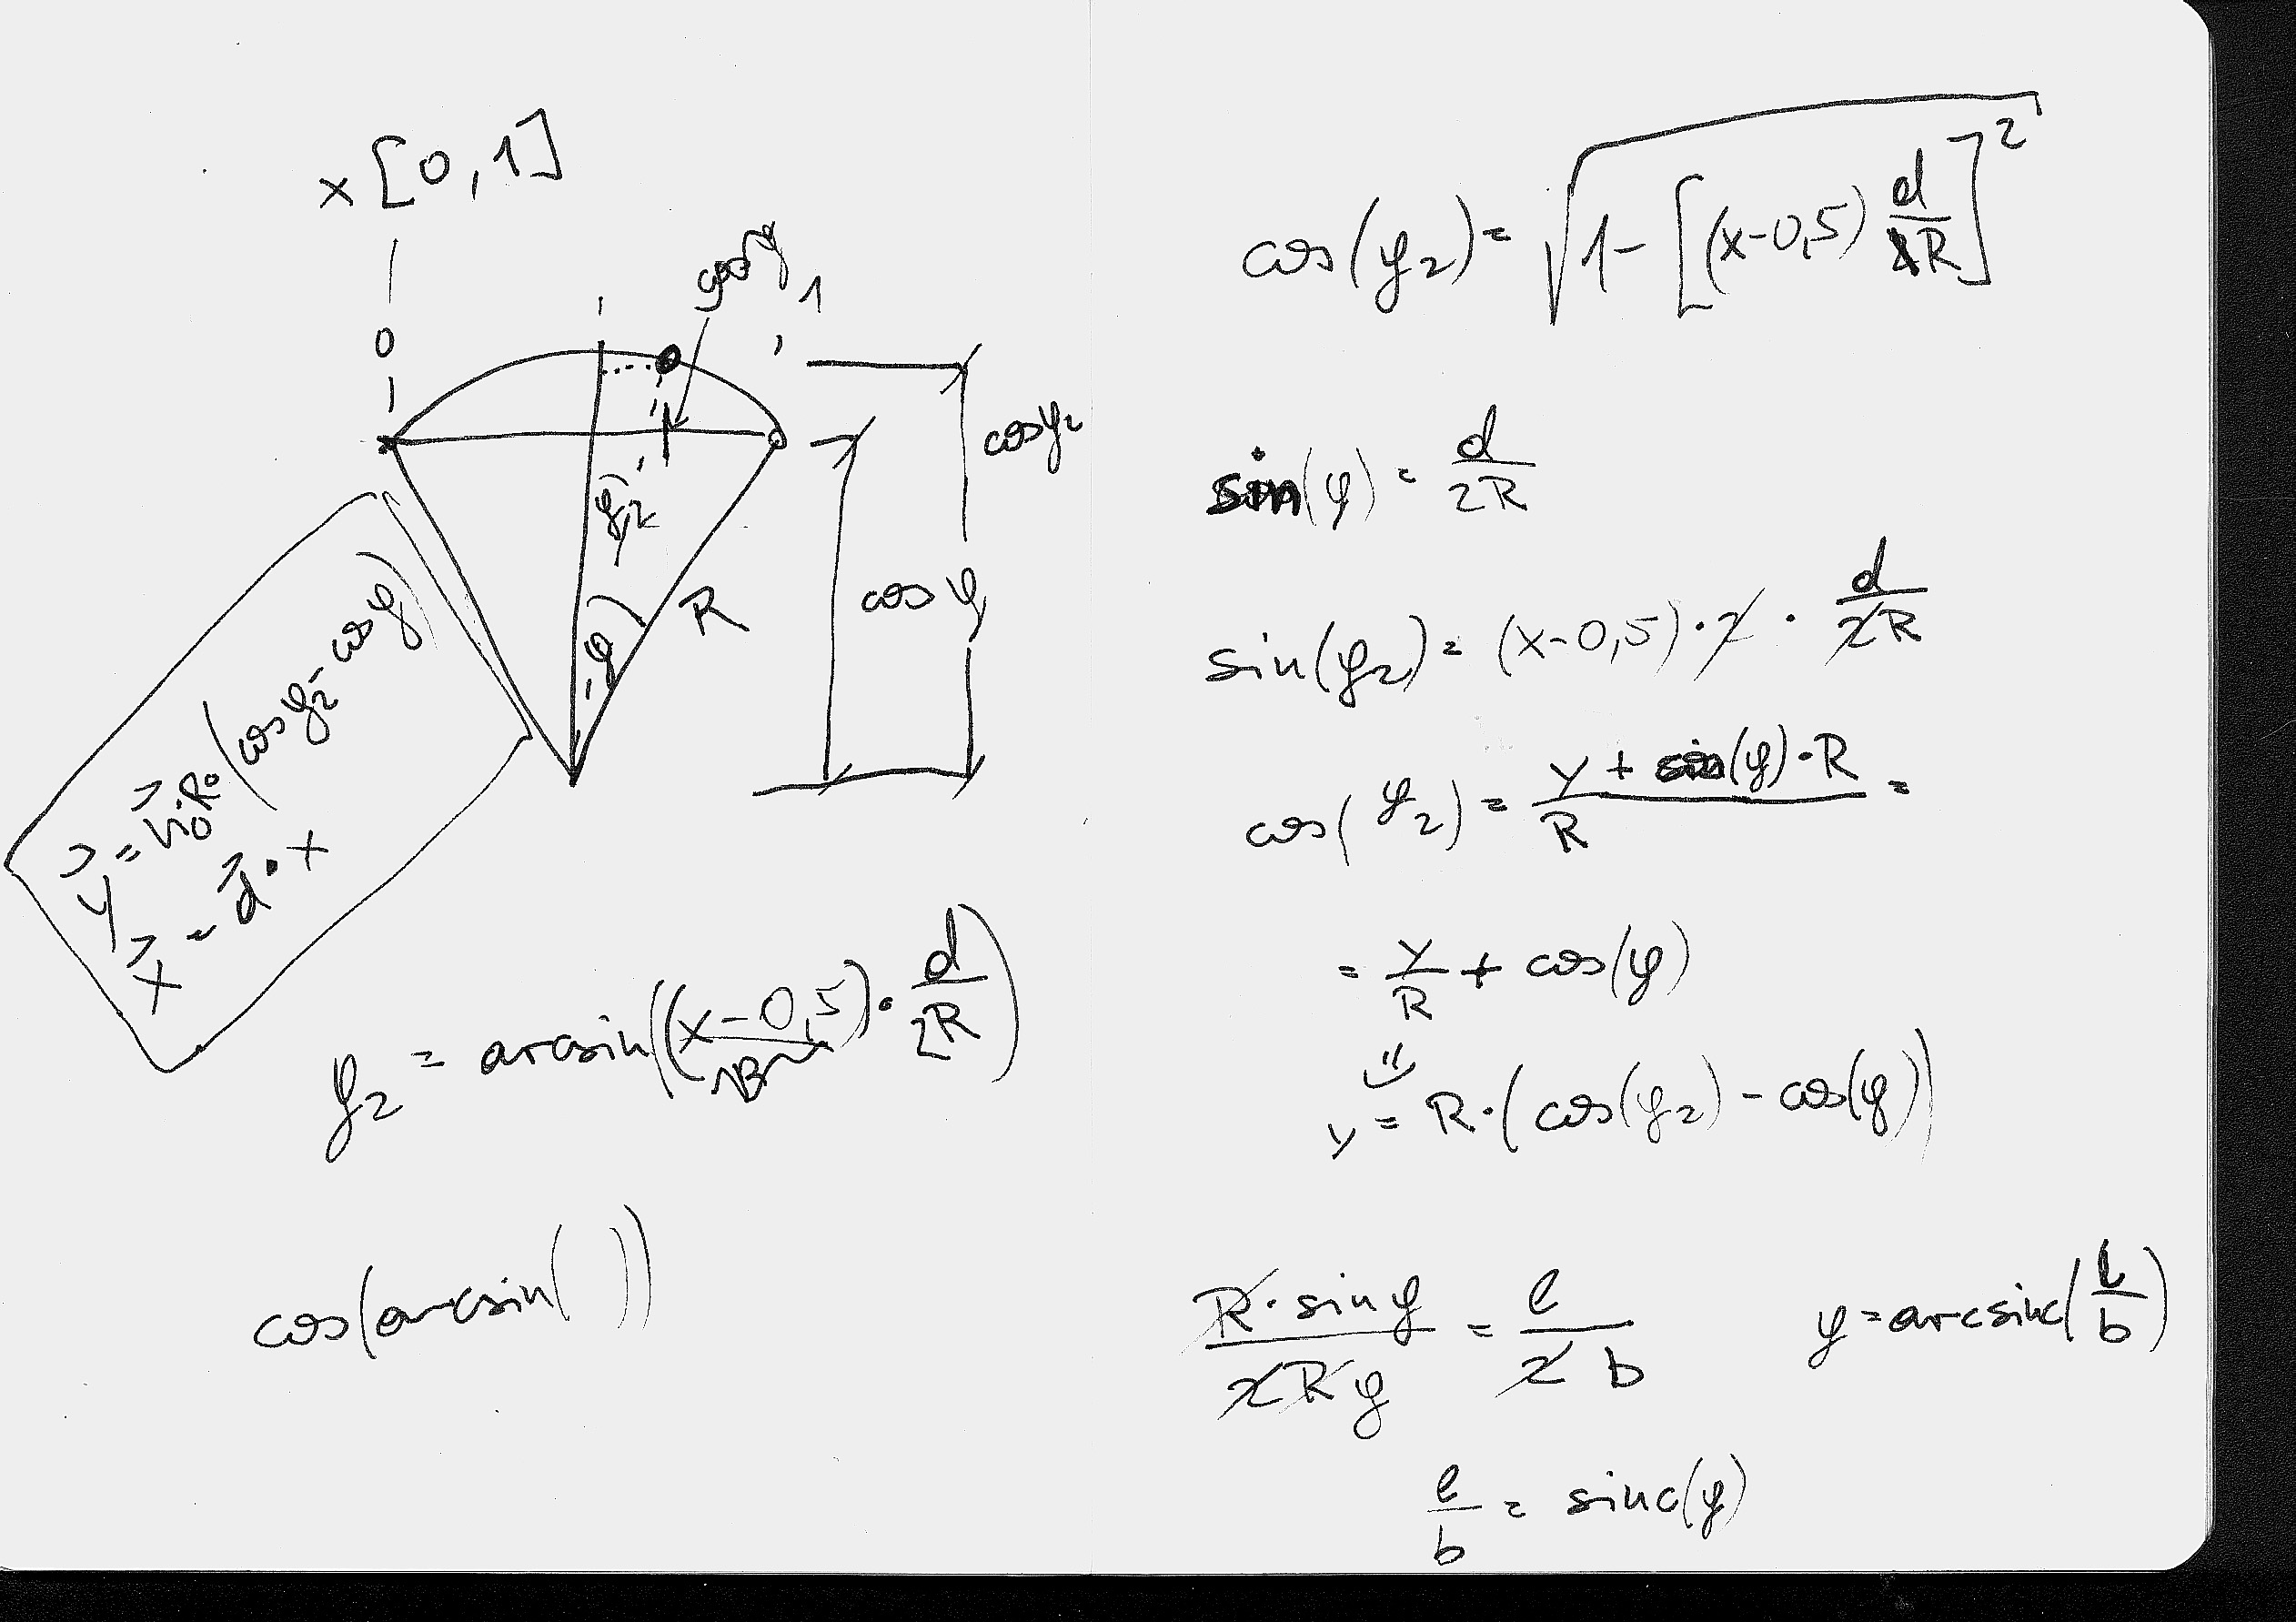 x [0,1]
0
1
cos φ₂
φ₂
cos φ
R
φ
y⃗ = n⃗₀·R·(cos φ₂ - cos φ)
x⃗ = d⃗ · x
φ₂ = arcsin((x-0,5)· d/2R)
cos(arcsin( ))
cos(φ₂) = √1-[(x-0,5) d/R]²
sin(φ) = d/2R
sin(φ₂) = (x-0,5)·2· d/2R
cos(φ₂) = y + sin(φ)·R / R =
= y/R + cos(φ)
y = R·(cos(φ₂) - cos(φ))
R·sin φ / 2Rφ = l / 2b
φ = arcsinc(l/b)
l/b = sinc(φ)